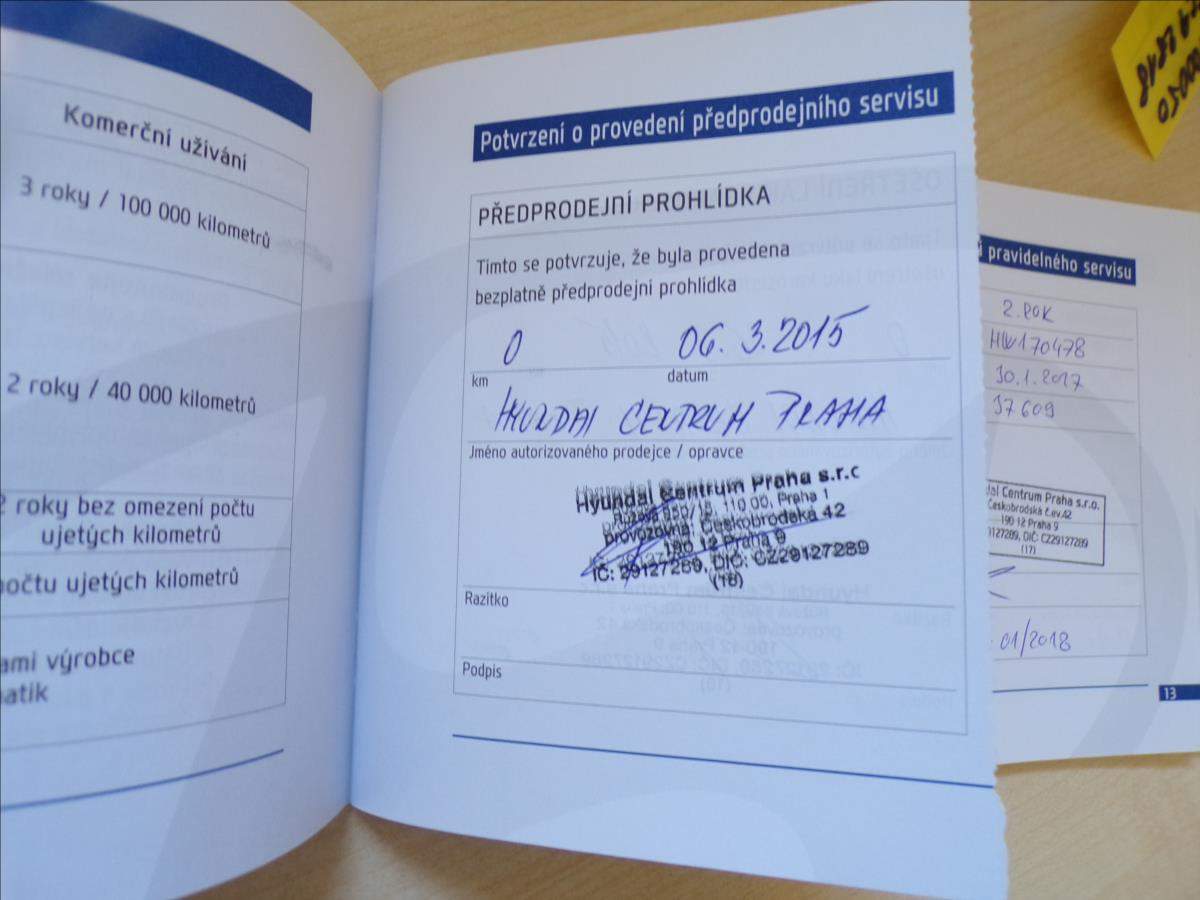 Komerční užívání
3 roky / 100 000 kilometrů
2 roky / 40 000 kilometrů
2 roky bez omezení počtu
ujetých kilometrů
počtu ujetých kilometrů
ami výrobce
atik
Potvrzení o provedení předprodejního servisu
PŘEDPRODEJNÍ PROHLÍDKA
Timto se potvrzuje, že byla provedena
bezplatně předprodejní prohlídka
0 06. 3. 2015
km datum
HYUNDAI CENTRUM PRAHA
Jméno autorizovaného prodejce / opravce
Hyundai Centrum Praha s.r.o
Růžová 950/15, 110 00, Praha 1
provozovna: Českobrodská 42
190 12 Praha 9
IČ: 29127289, DIČ: CZ29127289
(18)
Razítko
Podpis
pravidelného servisu
2. ROK
HW170478
30.1.2017
37609
Centrum Praha s.r.o.
Českobrodská č.ev.42
190 12 Praha 9
29127289, DIČ: CZ29127289
(17)
01/2018
13